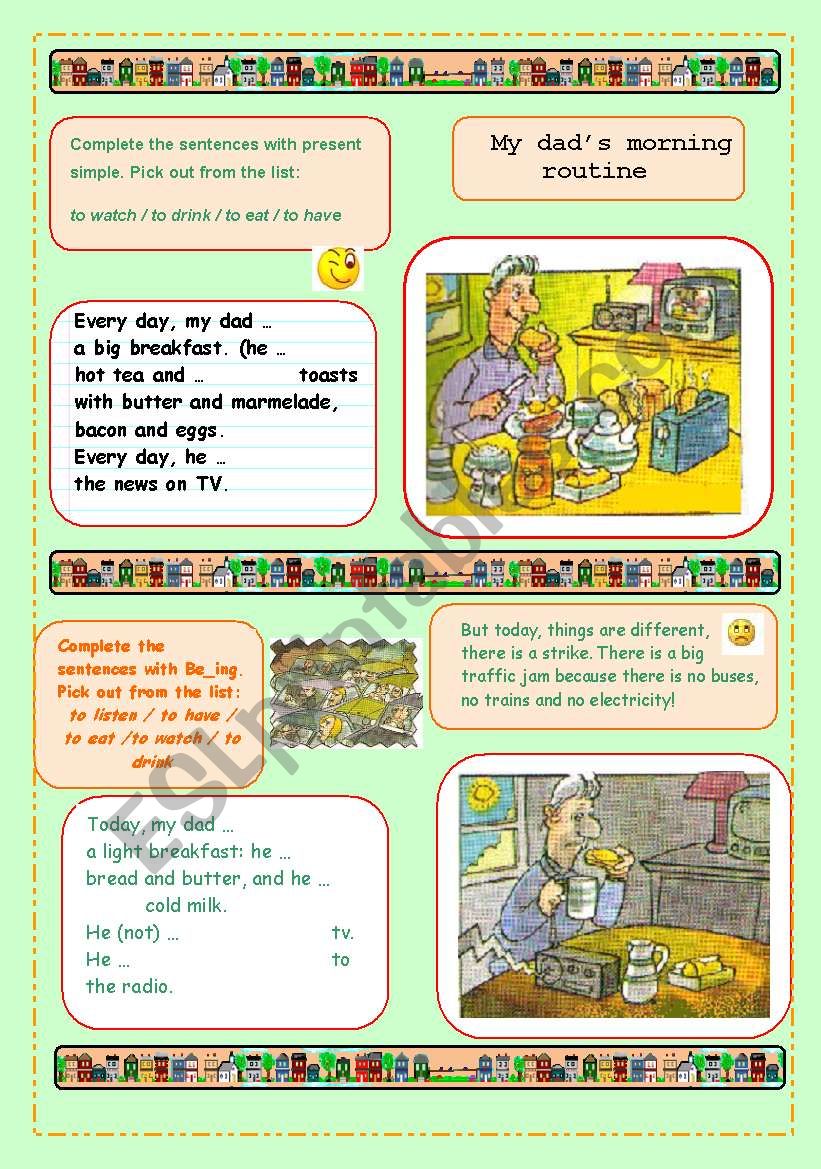 Complete the sentences with present
simple. Pick out from the list:
to watch / to drink / to eat / to have
My dad's morning
routine
Every day, my dad …
a big breakfast. (he …
hot tea and … toasts
with butter and marmelade,
bacon and eggs.
Every day, he …
the news on TV.
Complete the
sentences with Be_ing.
Pick out from the list:
to listen / to have /
to eat /to watch / to
drink
But today, things are different,
there is a strike. There is a big
traffic jam because there is no buses,
no trains and no electricity!
Today, my dad …
a light breakfast: he …
bread and butter, and he …
cold milk.
He (not) … tv.
He … to
the radio.
ESLprintables.com